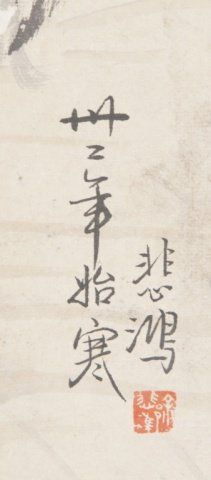 卅二年始寒
悲鴻